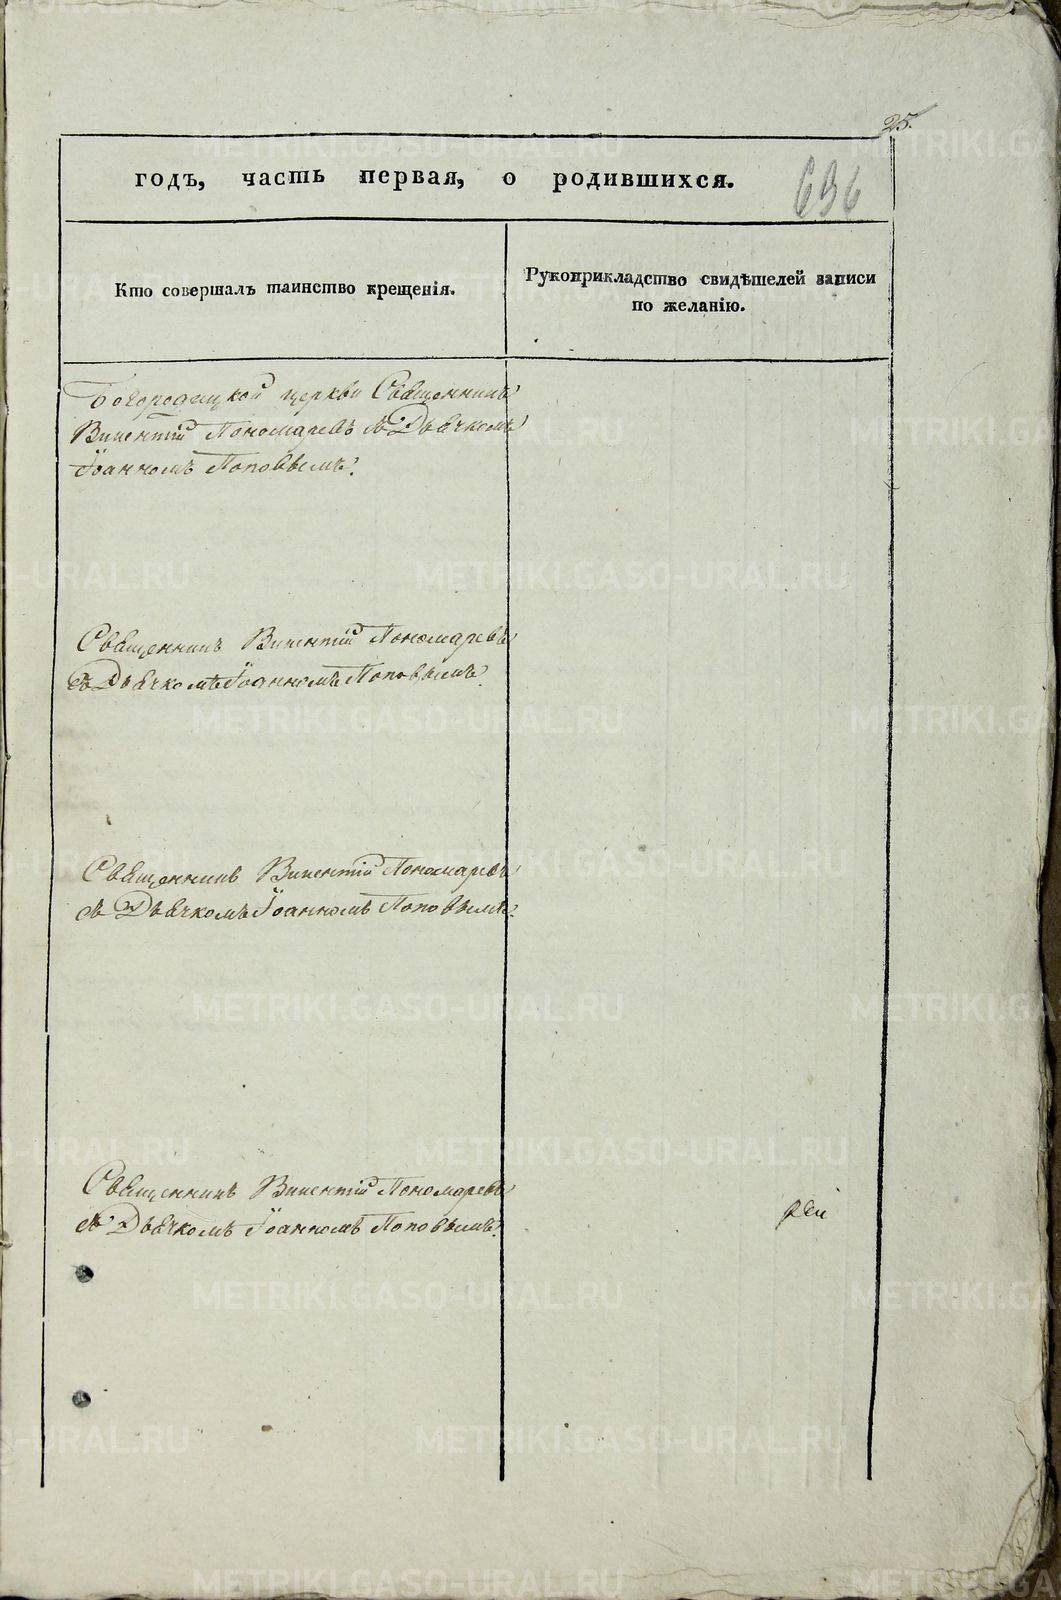 25.
годъ, часть первая, о родившихся.
696
Кто совершалъ таинство крещенія.
Рукоприкладство свидѣтелей записи
по желанію.
Богородицкой церкви Священникъ
Викентій Пономаревъ съ Дьячкомъ
Іоанномъ Поповымъ.
Священникъ Викентій Пономаревъ
съ Дьячкомъ Іоанномъ Поповымъ.
Священникъ Викентій Пономаревъ
съ Дьячкомъ Іоанномъ Поповымъ.
Священникъ Викентій Пономаревъ
съ Дьячкомъ Іоанномъ Поповымъ.
METRIKI.GASO-URAL.RU